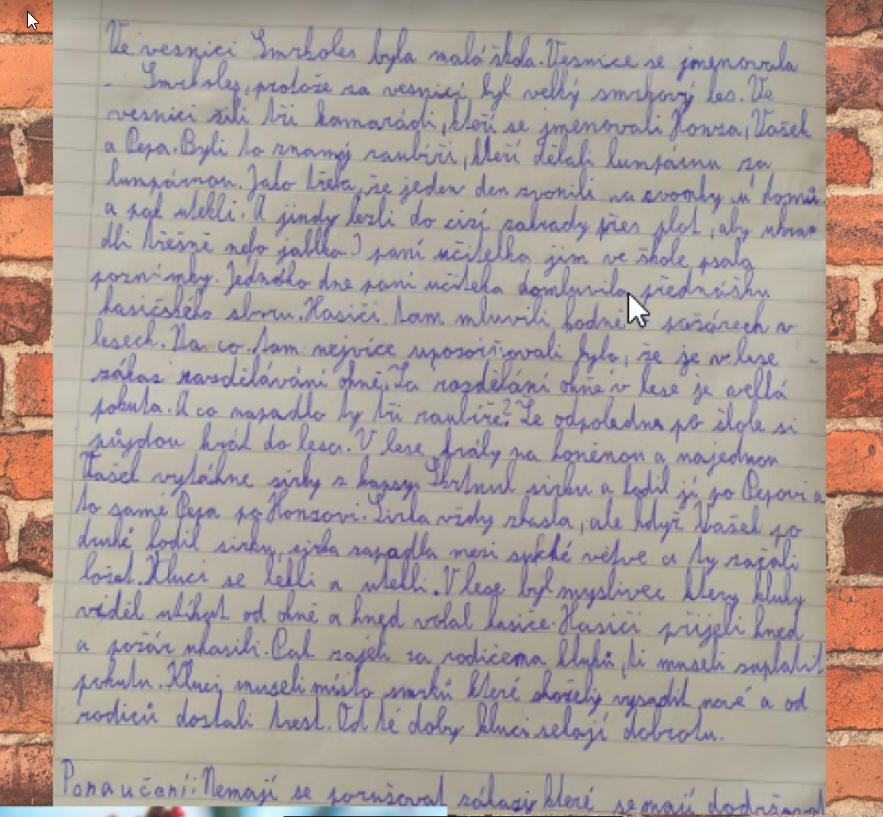 Ve vesnici Smrkoles byla malá škola. Vesnice se jmenovala
Smrkoles, protože za vesnicí byl velký smrkový les. Ve
vesnici žili tři kamarádi, kteří se jmenovali Honza, Vašek
a Pepa. Byli to znamý raubíři, kteří dělali lumpárnu za
lumpárnou. Jako třeba, že jeden den zvonili na zvonky u domů
a pak utekli. A jindy lezli do cizí zahrady přes plot, aby ukra-
dli třešně nebo jablka. I paní učitelka jim ve škole psala
poznímky. Jednoho dne paní učitelka domluvila přednášku
hasičského sboru. Hasiči tam mluvili hodně požárech v
lesech. Na co tam nejvíce upozorňovali bylo, že je v lese
zákaz rozdělávání ohně. Za rozdělání ohně v lese je velká
pokuta. A co napadlo ty tři raubíře? Že odpoledne po škole si
půjdou hrát do lesa. V lese hrály na honěnou a najednou
Vašek vytáhne sirky z kapsy. Škrtnul sirku a hodil jí po Pepovi a
to samé Pepa po Honzovi. Sirka vždy zhasla, ale když Vašek po
druhé hodil sirku, sirka zapadla mezi suché větve a ty začali
hořet. Kluci se lekli a utekli. V lese byl myslivec ktery kluky
viděl utíkat od ohně a hned volal hasiče. Hasiči přijeli hned
a požár uhasili. Pak zajeli za rodičema kluků, ti museli zaplatit
pokutu. Kluci museli místo smrků které shořely vysadit nové a od
rodičů dostali trest. Od té doby kluci sekají dobrotu.
Ponaučení: Nemají se porušovat zákazy které se mají dodržovat